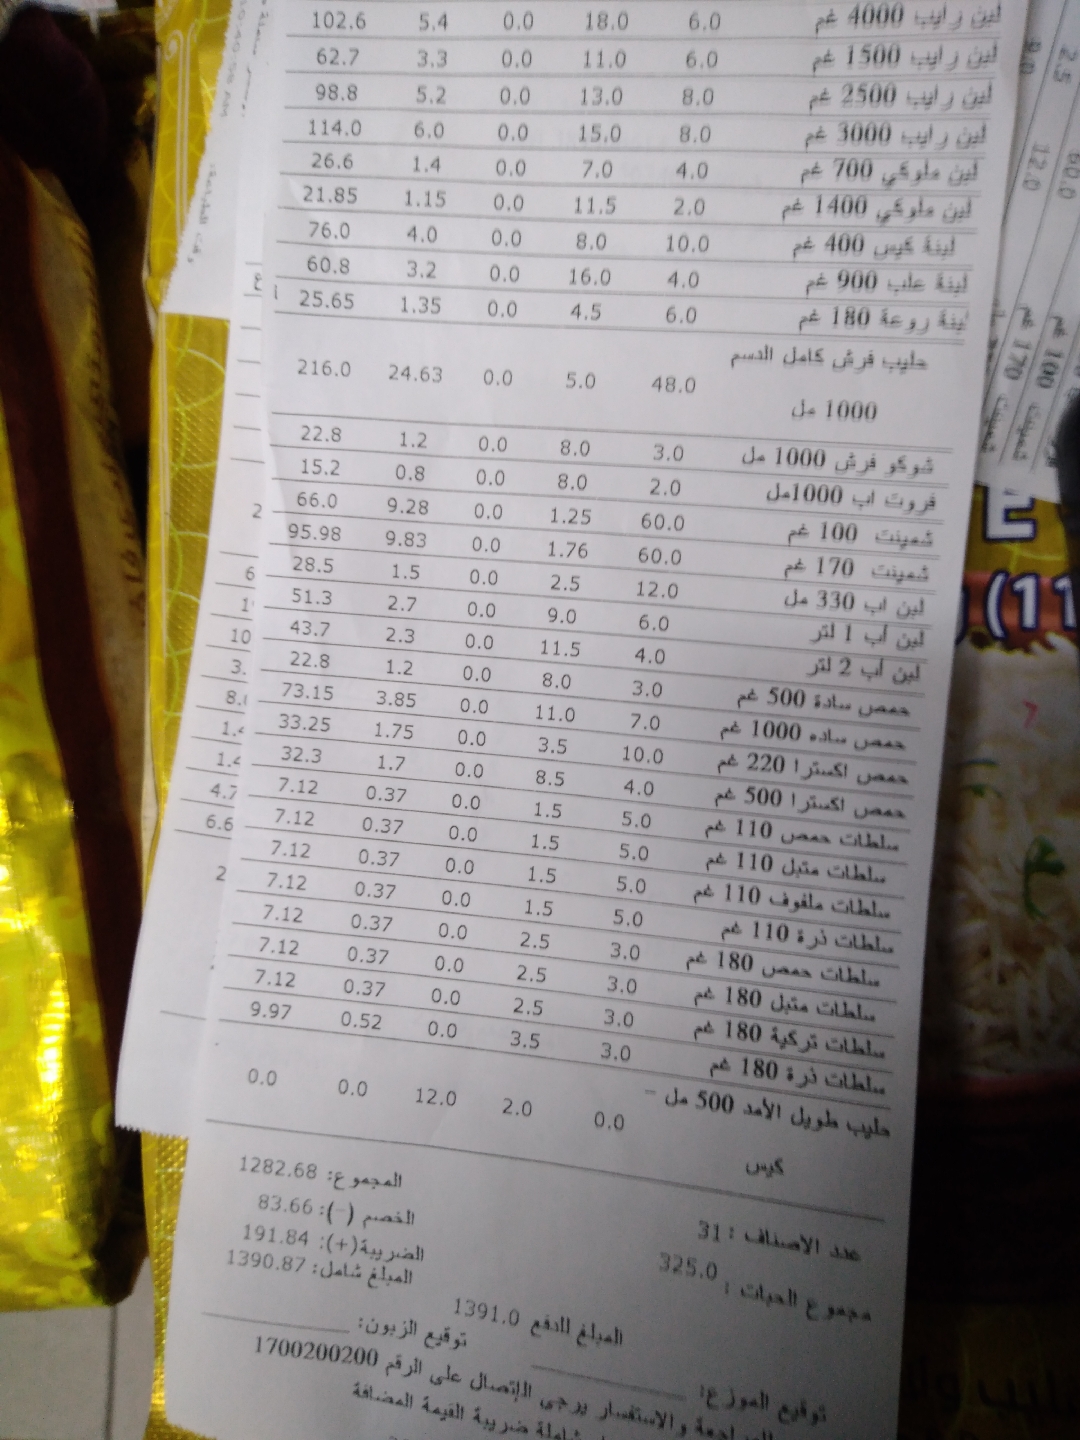 لبن رايب 4000 غم 6.0 18.0 0.0 5.4 102.6
لبن رايب 1500 غم 6.0 11.0 0.0 3.3 62.7
لبن رايب 2500 غم 8.0 13.0 0.0 5.2 98.8
لبن رايب 3000 غم 8.0 15.0 0.0 6.0 114.0
لبن ملوكي 700 غم 4.0 7.0 0.0 1.4 26.6
لبن ملوكي 1400 غم 2.0 11.5 0.0 1.15 21.85
لبنة كيس 400 غم 10.0 8.0 0.0 4.0 76.0
لبنة علب 900 غم 4.0 16.0 0.0 3.2 60.8
لبنة روعة 180 غم 6.0 4.5 0.0 1.35 25.65
حليب فرش كامل الدسم
1000 مل 48.0 5.0 0.0 24.63 216.0
شوكو فرش 1000 مل 3.0 8.0 0.0 1.2 22.8
فروت اب 1000مل 2.0 8.0 0.0 0.8 15.2
شمينت 100 غم 60.0 1.25 0.0 9.28 66.0
شمينت 170 غم 60.0 1.76 0.0 9.83 95.98
لبن اب 330 مل 12.0 2.5 0.0 1.5 28.5
لبن أب 1 لتر 6.0 9.0 0.0 2.7 51.3
لبن أب 2 لتر 4.0 11.5 0.0 2.3 43.7
حمص سادة 500 غم 3.0 8.0 0.0 1.2 22.8
حمص ساده 1000 غم 7.0 11.0 0.0 3.85 73.15
حمص اكسترا 220 غم 10.0 3.5 0.0 1.75 33.25
حمص اكسترا 500 غم 4.0 8.5 0.0 1.7 32.3
سلطات حمص 110 غم 5.0 1.5 0.0 0.37 7.12
سلطات متبل 110 غم 5.0 1.5 0.0 0.37 7.12
سلطات ملفوف 110 غم 5.0 1.5 0.0 0.37 7.12
سلطات ذرة 110 غم 5.0 1.5 0.0 0.37 7.12
سلطات حمص 180 غم 3.0 2.5 0.0 0.37 7.12
سلطات متبل 180 غم 3.0 2.5 0.0 0.37 7.12
سلطات تركية 180 غم 3.0 2.5 0.0 0.37 7.12
سلطات ذرة 180 غم 3.0 3.5 0.0 0.52 9.97
حليب طويل الأمد 500 مل -
كيس 0.0 2.0 12.0 0.0 0.0
المجموع: 1282.68
الخصم (-): 83.66
عدد الاصناف : 31
الضريبة(+): 191.84
مجموع الحبات : 325.0
المبلغ شامل: 1390.87
المبلغ للدفع 1391.0
توقيع الزبون:
توقيع الموزع:
للمراجعة والاستفسار يرجى الإتصال على الرقم 1700200200
شاملة ضريبة القيمة المضافة